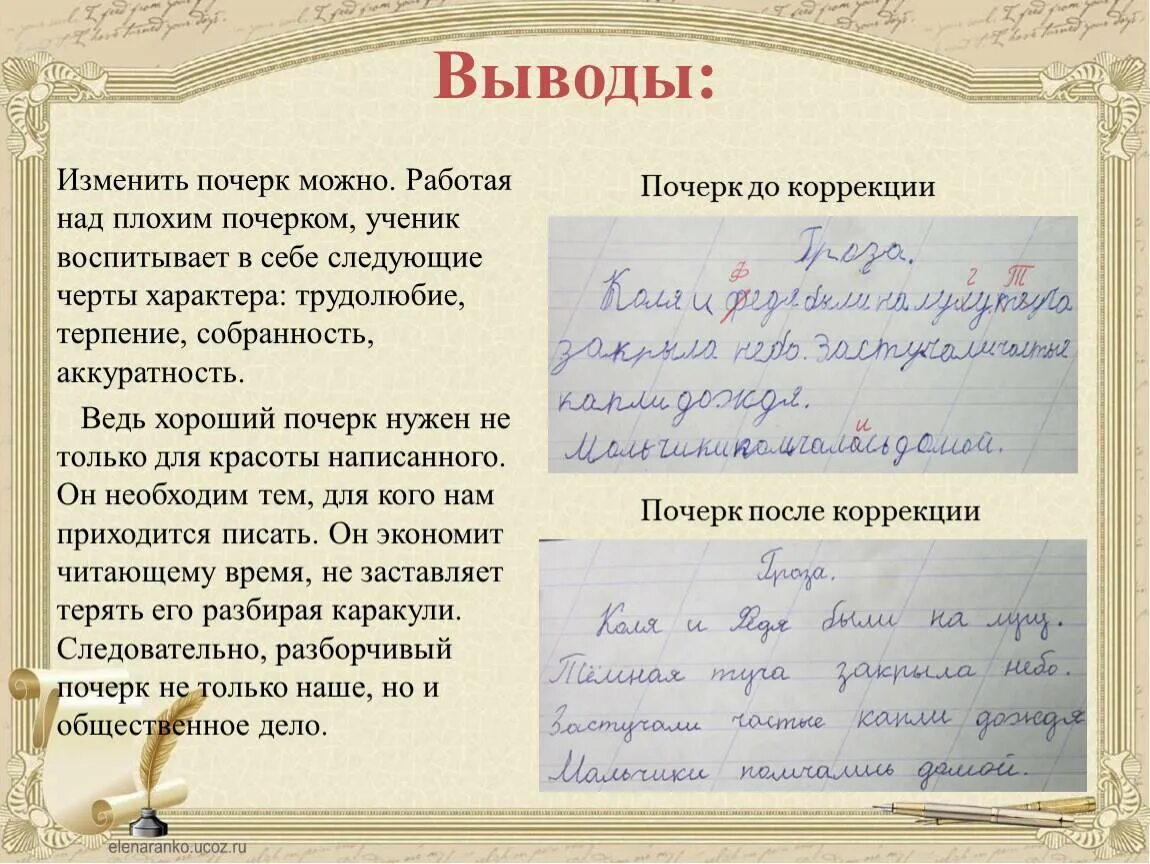 Выводы:
Изменить почерк можно. Работая
над плохим почерком, ученик
воспитывает в себе следующие
черты характера: трудолюбие,
терпение, собранность,
аккуратность.
Ведь хороший почерк нужен не
только для красоты написанного.
Он необходим тем, для кого нам
приходится писать. Он экономит
читающему время, не заставляет
терять его разбирая каракули.
Следовательно, разборчивый
почерк не только наше, но и
общественное дело.
Почерк до коррекции
Гроза.
Ф г Т
Коля и федя были на луху. туча
закрыла небо. Застучали частые
капли дождя.
и
Мальчики помчалась домой.
Почерк после коррекции
Гроза.
Коля и Федя были на лугу.
Тёмная туча закрыла небо.
Застучали частые капли дождя
Мальчики помчались домой.
elenaranko.ucoz.ru